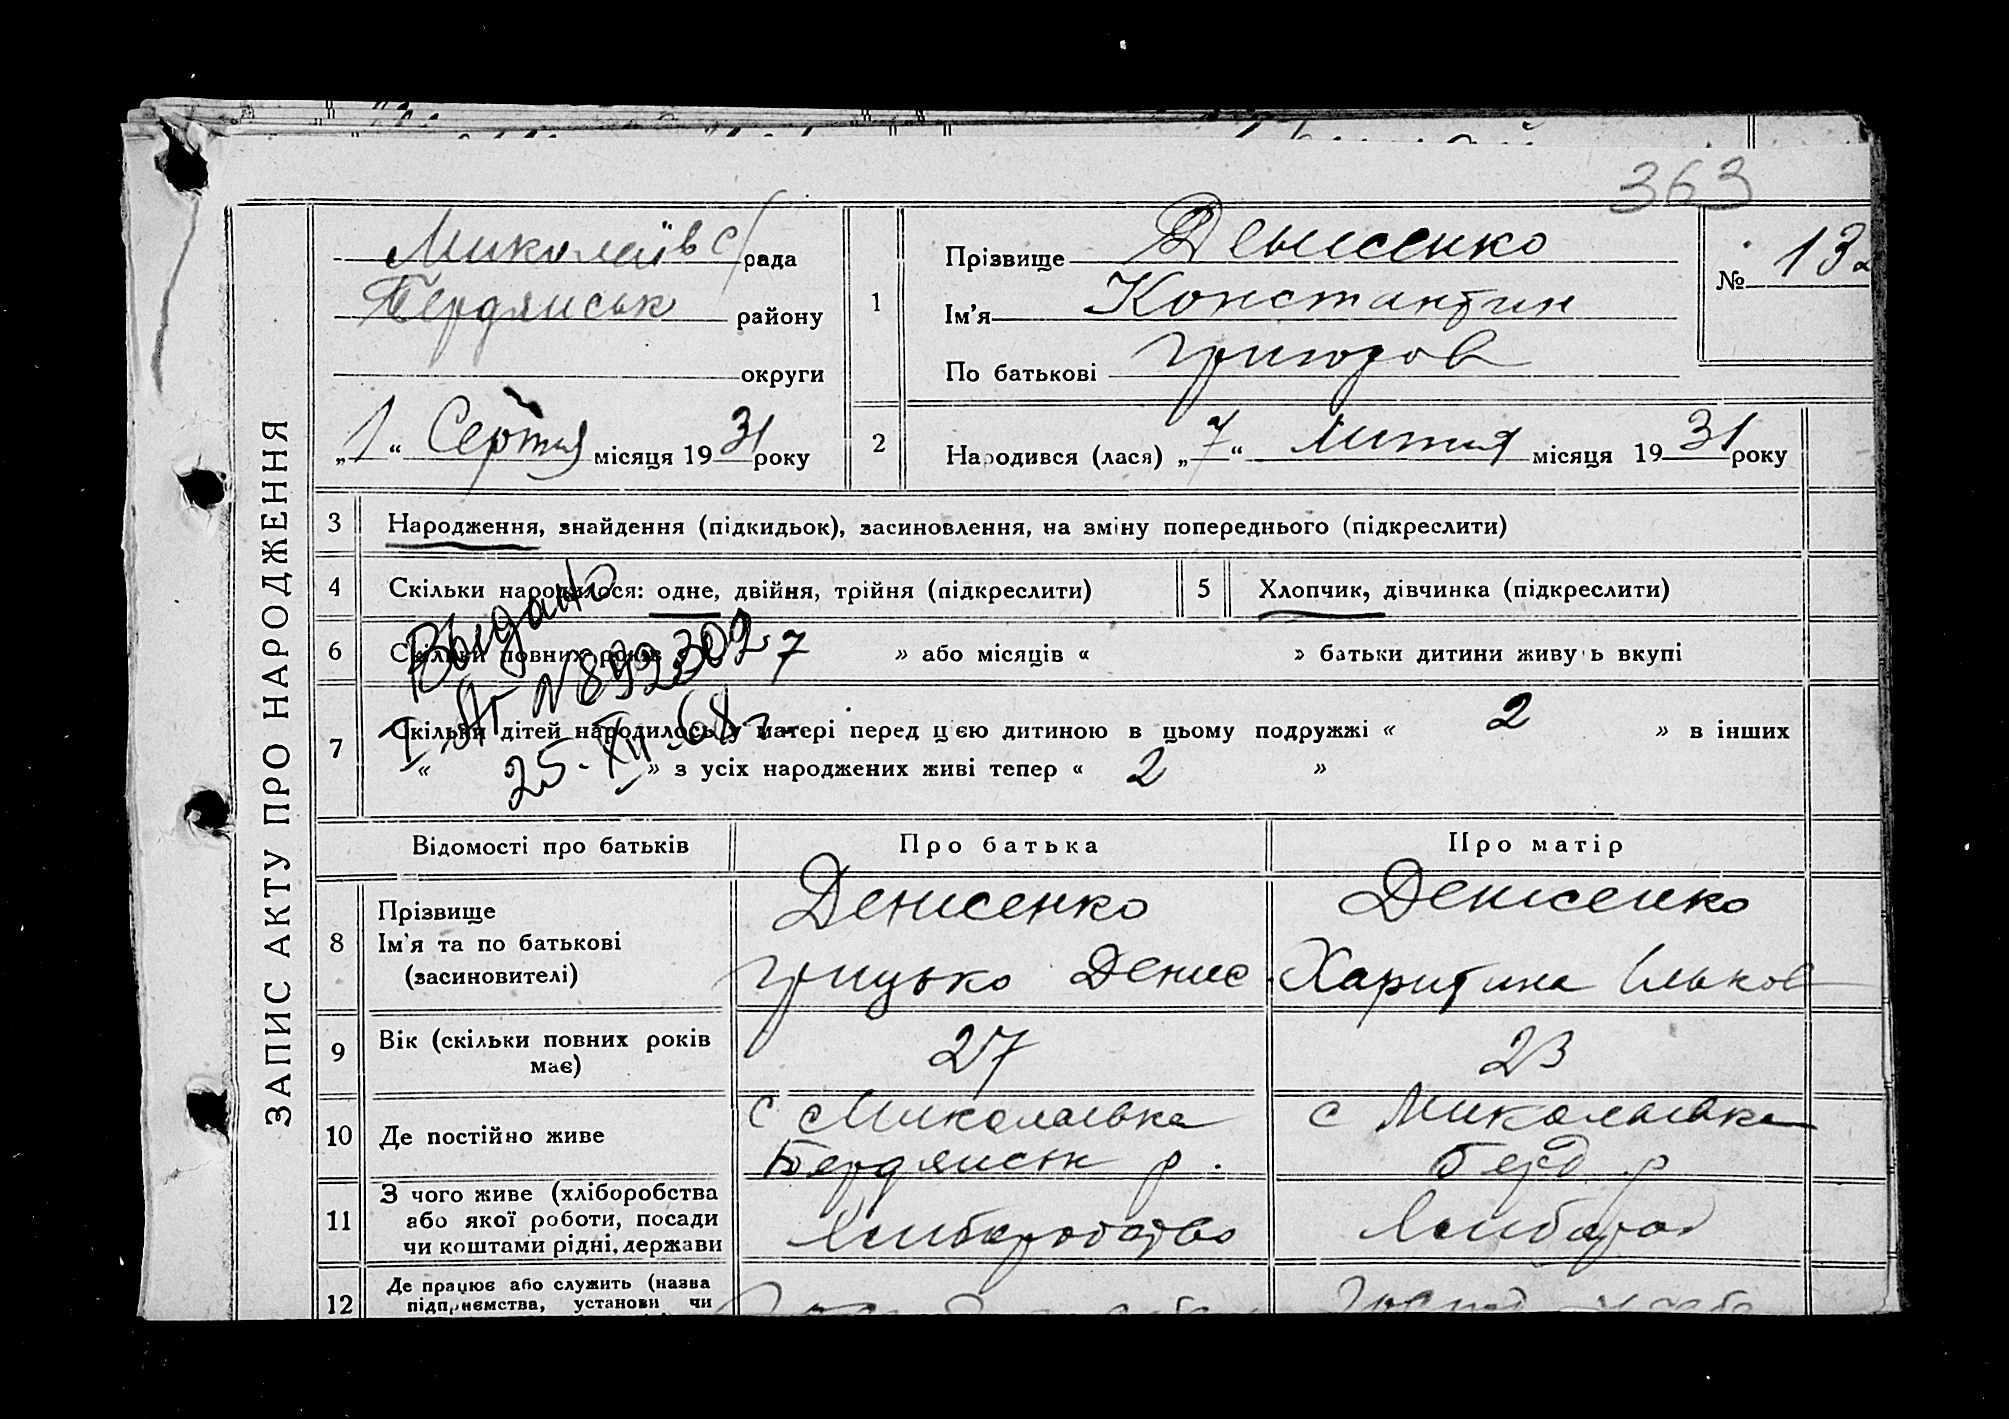 363
ЗАПИС АКТУ ПРО НАРОДЖЕННЯ
Миколаїв с/рада
Бердянськ району
округи
„1“ Серпня місяця 1931 року
1
Прізвище Денисенко
Ім'я Константин
По батькові Григоров
№ 13
2
Народився (лася) „7“ Липня місяця 1931 року
3 Народження, знайдення (підкидьок), засиновлення, на зміну попереднього (підкреслити)
4 Скільки народилося: одне, двійня, трійня (підкреслити)
5 Хлопчик, дівчинка (підкреслити)
6 Скільки повних років 7 » або місяців « » батьки дитини живуть вкупі
7 Скільки дітей народилось у матері перед цією дитиною в цьому подружжі « 2 » в інших
« » з усіх народжених живі тепер « 2 »
Выдано
I-АГ №892302
25-XII-68 г.
Відомості про батьків Про батька Про матір
8
Прізвище
Ім'я та по батькові
(засиновителі)
Денисенко
Грицько Денис
Денисенко
Харитина Ільков
9
Вік (скільки повних років
має)
27
23
10 Де постійно живе
с Миколаївка
Бердянськ р.
с Миколаївка
Берд р
11
З чого живе (хліборобства
або якої роботи, посади
чи коштами рідні, держави
Хліборобство
Хлібороб
12
Де працює або служить (назва
підприємства, установи чи